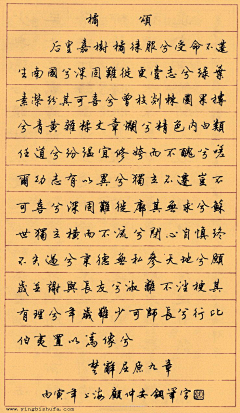 橘頌
后皇嘉樹橘徠服兮受命不遷
生南國兮深固難徙更壹志兮綠葉
素榮紛其可喜兮曾枝剡棘圓果摶
兮青黃雜糅文章爛兮精色內白類
任道兮紛縕宜修姱而不醜兮嗟
爾幼志有以異兮獨立不遷豈不
可喜兮深固難徙廓其無求兮蘇
世獨立橫而不流兮閉心自慎終
不失過兮秉德無私參天地兮願
歲并謝與長友兮淑離不淫梗其
有理兮年歲雖少可師長兮行比
伯夷置以爲像兮
楚辭屈原九章
丙寅年上海顧仲安鋼筆字
www.yingbishufa.com